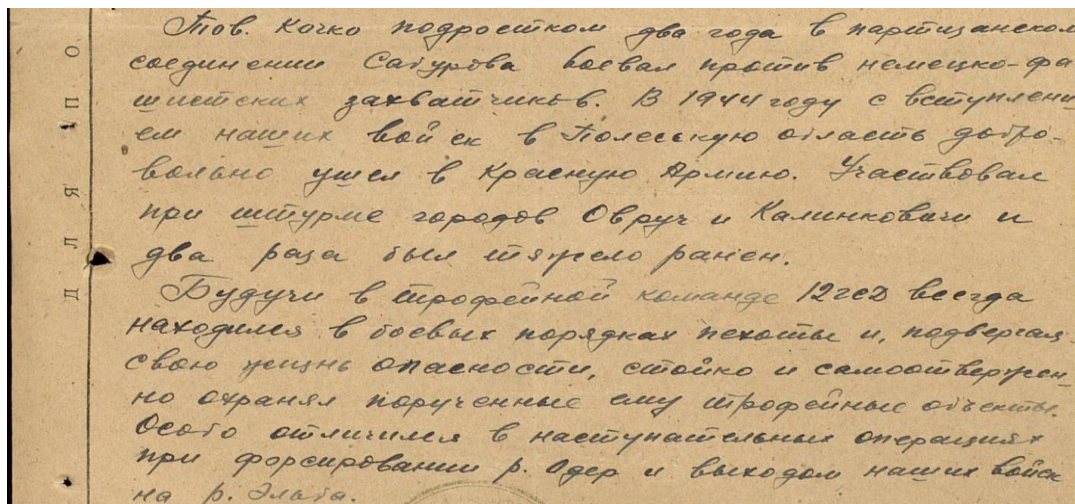 Тов. Кочко подростком два года в партизанском
соединении Сабурова воевал против немецко-фа
шистских захватчиков. В 1944 году с вступлени
ем наших войск в Полесскую область добро-
вольно ушел в Красную Армию. Участвовал
при штурме городов Овруч и Калинковичи и
два раза был тяжело ранен.
Будучи в трофейной команде 12гсд всегда
находился в боевых порядках пехоты и, подвергая
свою жизнь опасности, стойко и самоотвержен-
но охранял порученные ему трофейные объекты.
Особо отличился в наступательных операциях
при форсировании р. Одер и выходом наших войск
на р. Эльба.
ДЛЯ ПО